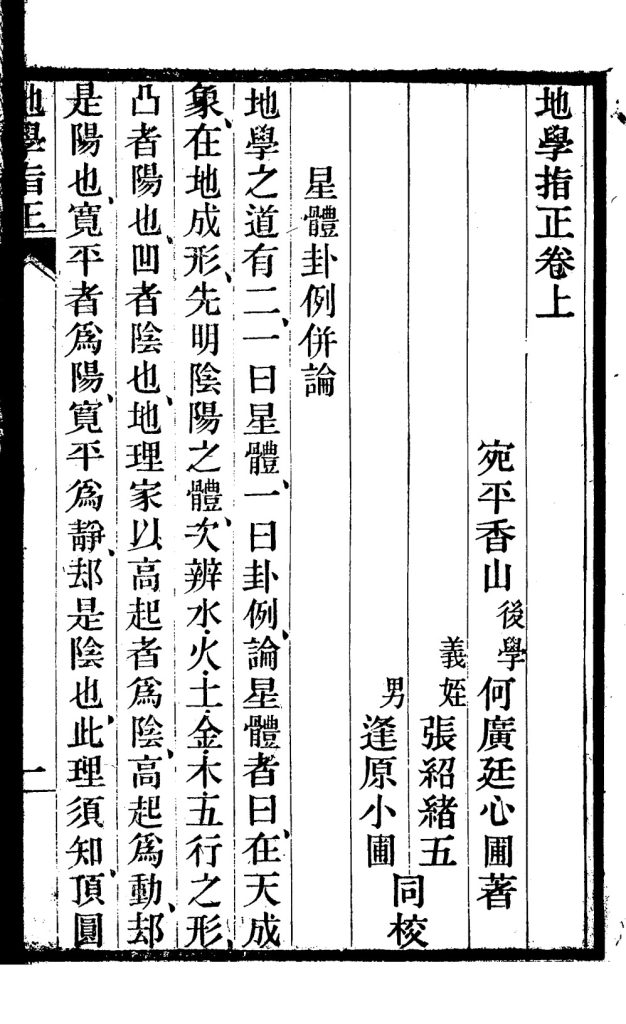 地學指正卷上
宛平香山後學何廣廷心圃著
義姪張紹緒五
男逢原小圃
同校
星體卦例併論
地學之道有二、一曰星體、一曰卦例、論星體者曰、在天成
象、在地成形、先明陰陽之體、次辨水·火·土·金·木·五行之形、
凸者陽也、凹者陰也、地理家以高起者爲陰、高起爲動、却
是陽也、寬平者爲陽、寬平爲靜、却是陰也、此理須知、頂圓
地學指正
一